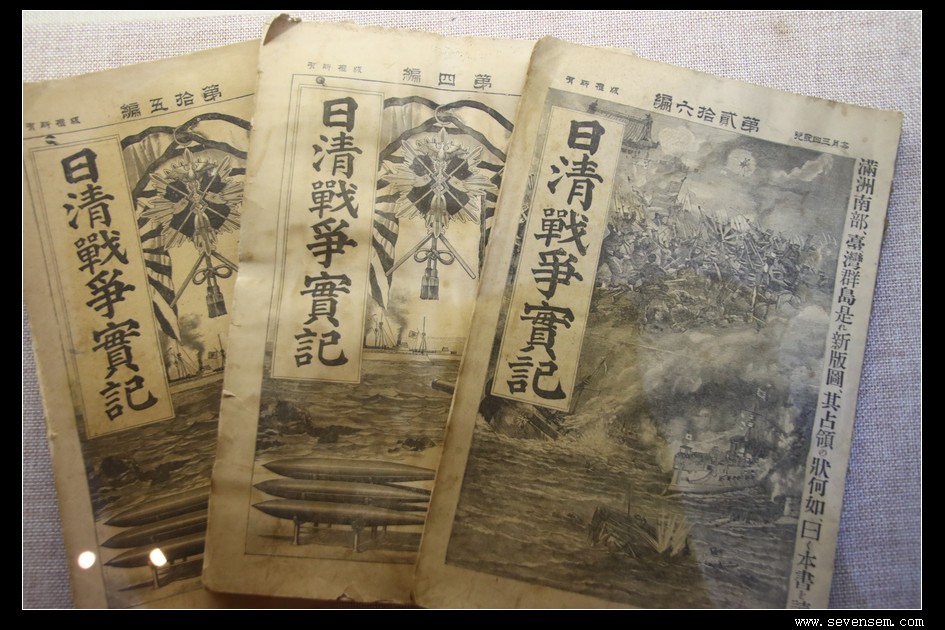 版權所有
第拾五編
日清戰爭實記
版權所有
第四編
日清戰爭實記
版權所有
第貳拾六編
每月三回發兌
日清戰爭實記
滿洲南部、臺灣群島是れ新版圖、其占領の狀何如、曰く本書を
www.sevensem.com